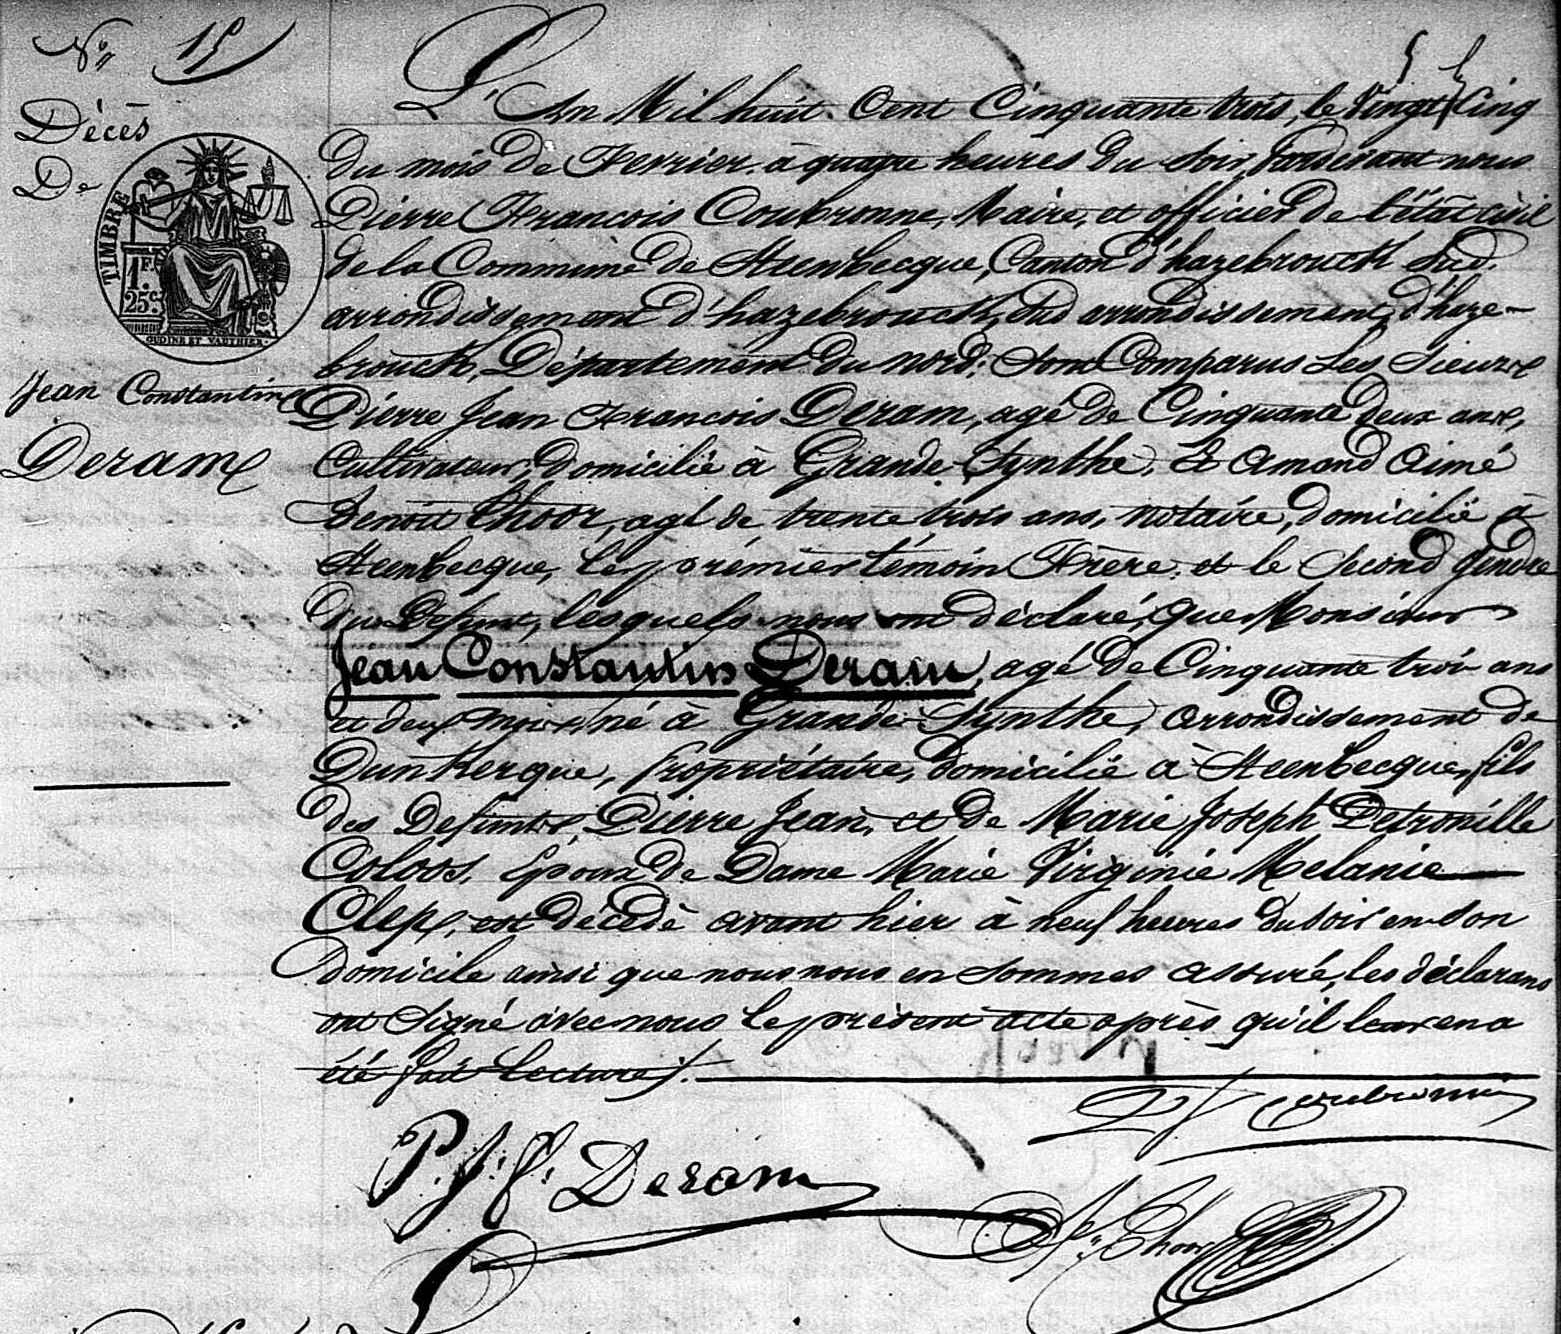 Nº 15
Décès
De
TIMBRE
1 F.
25 c.
OUDINE ET VAUTHIER.
Jean Constantin
Deram
L'An Mil huit Cent Cinquante trois, le Vingt Cinq
du mois de Fevrier, à quatre heures du soir, Pardevant nous
Pierre François Coubronne, Maire, et officier de l'état civil
de la Commune de Steenbecque, Canton d'hazebrouck Sud,
arrondissement d'hazebrouck, Sud arrondissement, d'haze-
brouck, Département du nord; Sont Comparus Les Sieurs
Pierre Jean François Deram, agé de Cinquante deux ans,
Cultivateur, domicilié à Grande-Synthe, Et Amand Aimé
Benoit Thoor, agé de trente trois ans, notaire, domicilié à
Steenbecque, le prémier témoin Frère, et le Second gendre
du Defunt, lesquels nous ont déclaré, que Monsieur
Jean Constantin Deram, agé de Cinquante trois ans
et deux mois, né à Grande-Synthe, arrondissement de
Dunkerque, propriétaire, domicilié à Steenbecque, fils
des Defunts, Pierre Jean, et de Marie Joseph Petronille
Coloos, Epoux de Dame Marie Virginie Melanie
Clep, est decedé avant hier à neuf heures du soir en son
domicile ainsi que nous nous en sommes assuré, les déclarans
ont Signé avec nous le présent acte après qu'il leur en a
été fait Lecture.
P. J. F. Deram
Coubronne
Thoor